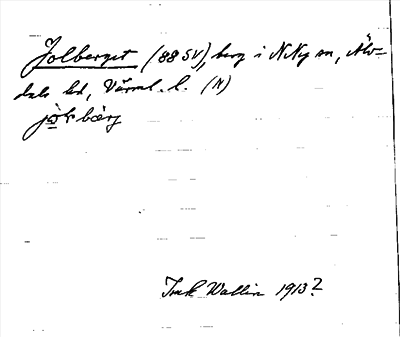 Jolberget (88 SV), berg i N Ny sn, Älv-
dals hd, Värml. l. (N)
berg
Wallin 1913?